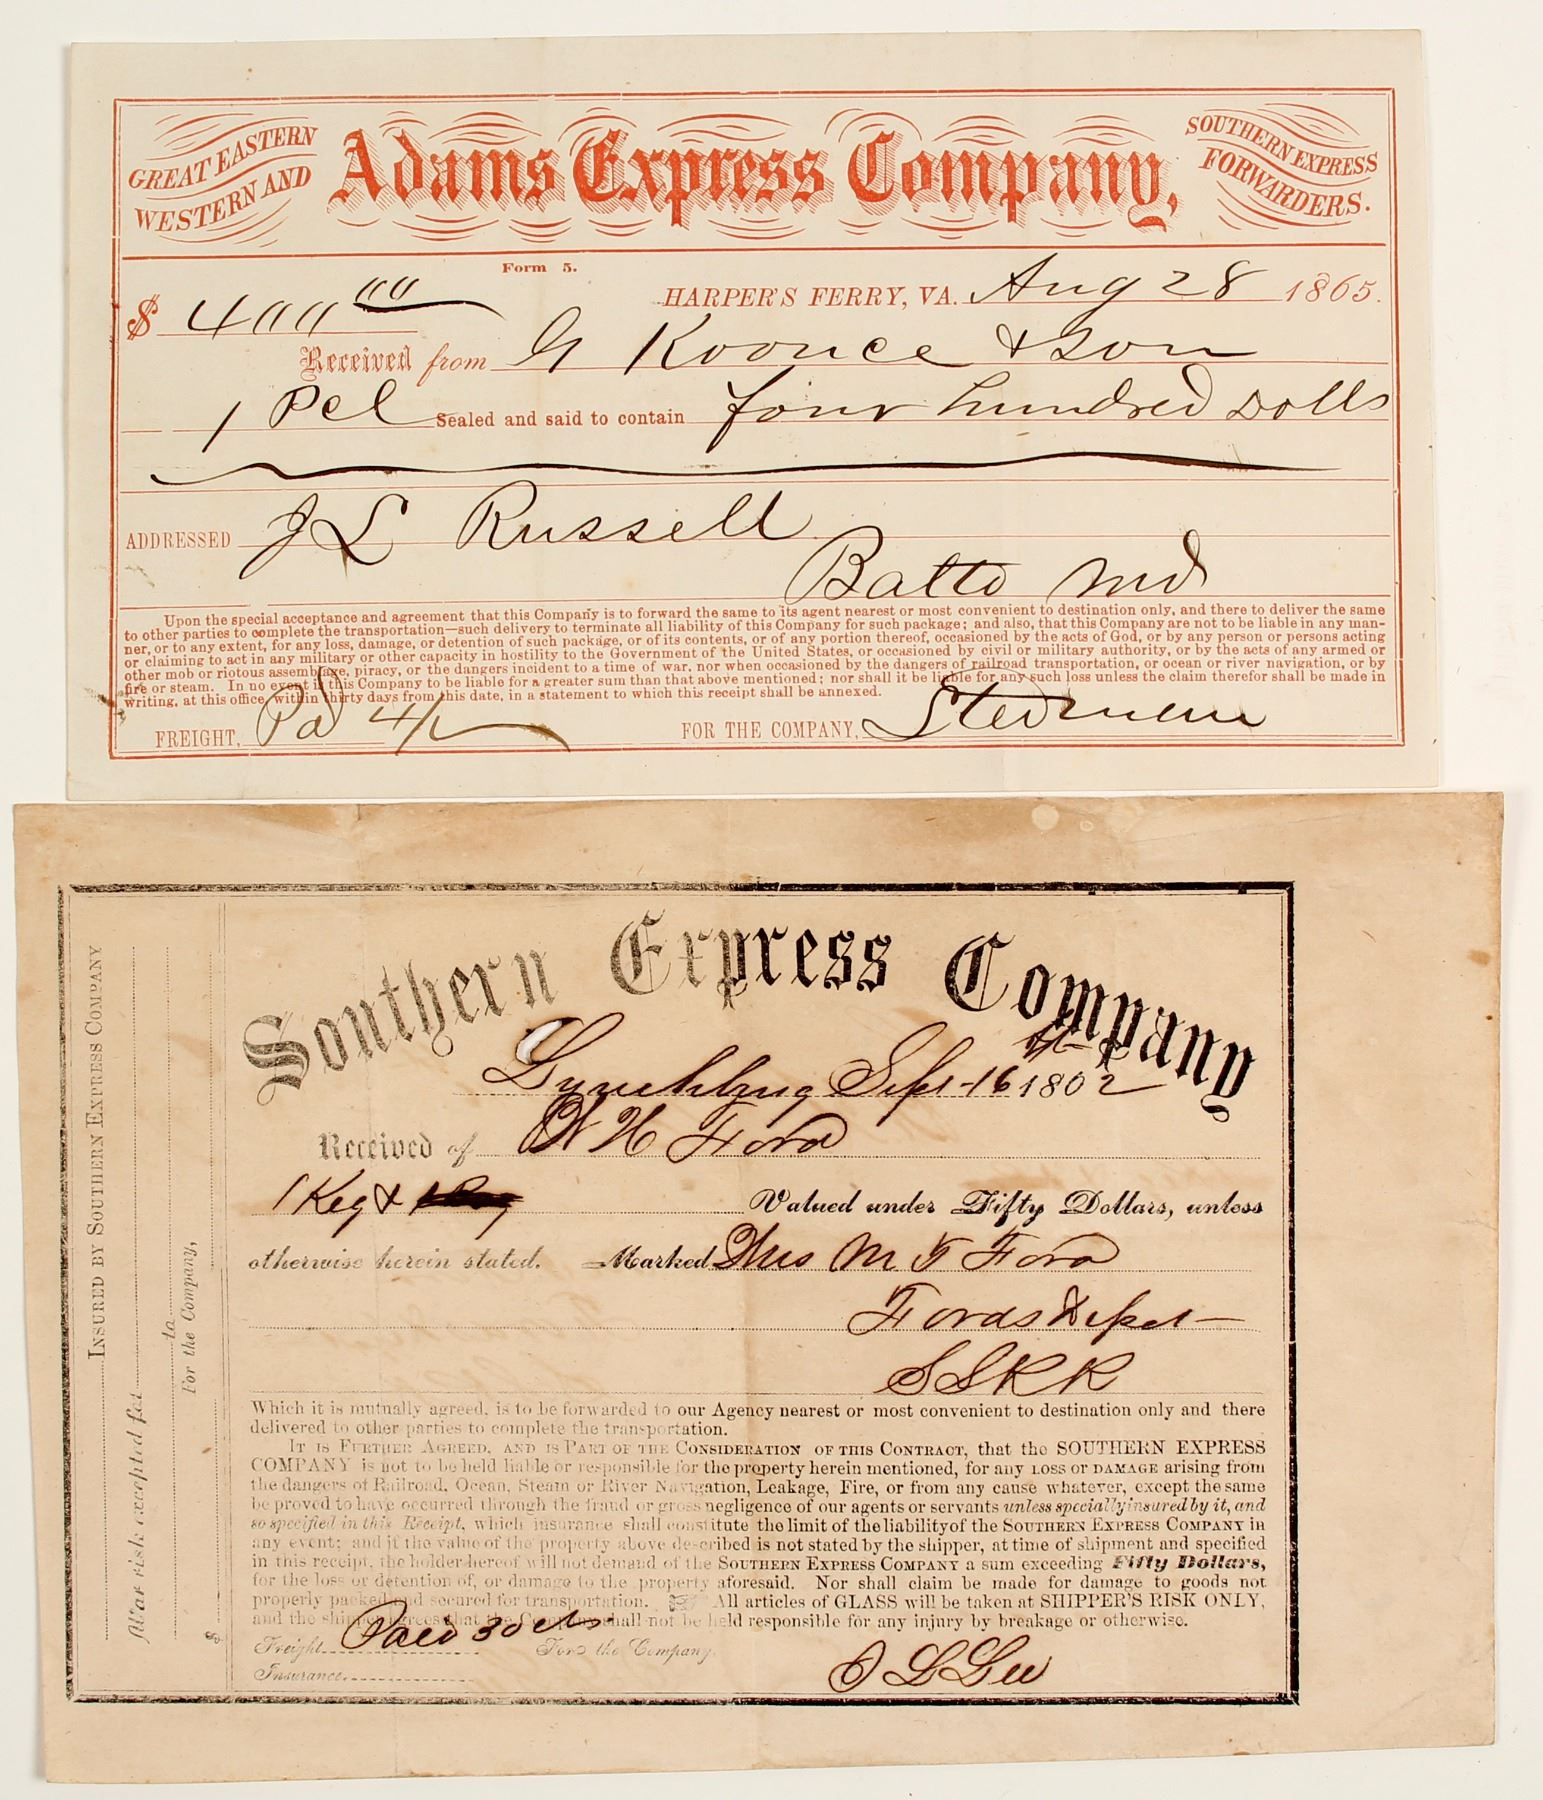 GREAT EASTERN
WESTERN AND
Adams Express Company,
SOUTHERN EXPRESS
FORWARDERS.
Form 5.
$ 400 00 HARPER'S FERRY, VA. Aug 28 1865.
Received from G Koonce & Son
1 Pcl Sealed and said to contain four hundred Dolls
ADDRESSED J L Russell
Balto Md
Upon the special acceptance and agreement that this Company is to forward the same to its agent nearest or most convenient to destination only, and there to deliver the same
to other parties to complete the transportation—such delivery to terminate all liability of this Company for such package; and also, that this Company are not to be liable in any man-
ner, or to any extent, for any loss, damage, or detention of such package, or of its contents, or of any portion thereof, occasioned by the acts of God, or by any person or persons acting
or claiming to act in any military or other capacity in hostility to the Government of the United States, or occasioned by civil or military authority, or by the acts of any armed or
other mob or riotous assemblage, piracy, or the dangers incident to a time of war, nor when occasioned by the dangers of railroad transportation, or ocean or river navigation, or by
fire or steam. In no event is this Company to be liable for a greater sum than that above mentioned; nor shall it be liable for any such loss unless the claim therefor shall be made in
writing, at this office, within thirty days from this date, in a statement to which this receipt shall be annexed.
FREIGHT, Pd 4/ FOR THE COMPANY, Stedman
INSURED BY SOUTHERN EXPRESS COMPANY
War risk excepted for
to
For the Company,
$
Southern Express Company
Lynchburg Sept 16 1862
Received of W H Ford
1 Keg & Valued under Fifty Dollars, unless
otherwise herein stated. Marked Mrs M F Ford
Fords Depot
S S R R
Which it is mutually agreed, is to be forwarded to our Agency nearest or most convenient to destination only and there
delivered to other parties to complete the transportation.
IT IS FURTHER AGREED, AND IS PART OF THE CONSIDERATION OF THIS CONTRACT, that the SOUTHERN EXPRESS
COMPANY is not to be held liable or responsible for the property herein mentioned, for any LOSS OR DAMAGE arising from
the dangers of Railroad, Ocean, Steam or River Navigation, Leakage, Fire, or from any cause whatever, except the same
be proved to have occurred through the fraud or gross negligence of our agents or servants unless specially insured by it, and
so specified in this Receipt, which insurance shall constitute the limit of the liability of the SOUTHERN EXPRESS COMPANY in
any event; and if the value of the property above described is not stated by the shipper, at time of shipment and specified
in this receipt, the holder hereof will not demand of the SOUTHERN EXPRESS COMPANY a sum exceeding Fifty Dollars,
for the loss or detention of, or damage to the property aforesaid. Nor shall claim be made for damage to goods not
properly packed and secured for transportation. All articles of GLASS will be taken at SHIPPER'S RISK ONLY,
and the shipper agrees that the Company shall not be held responsible for any injury by breakage or otherwise.
Freight Paid 30 cts For the Company
Insurance O L Lee